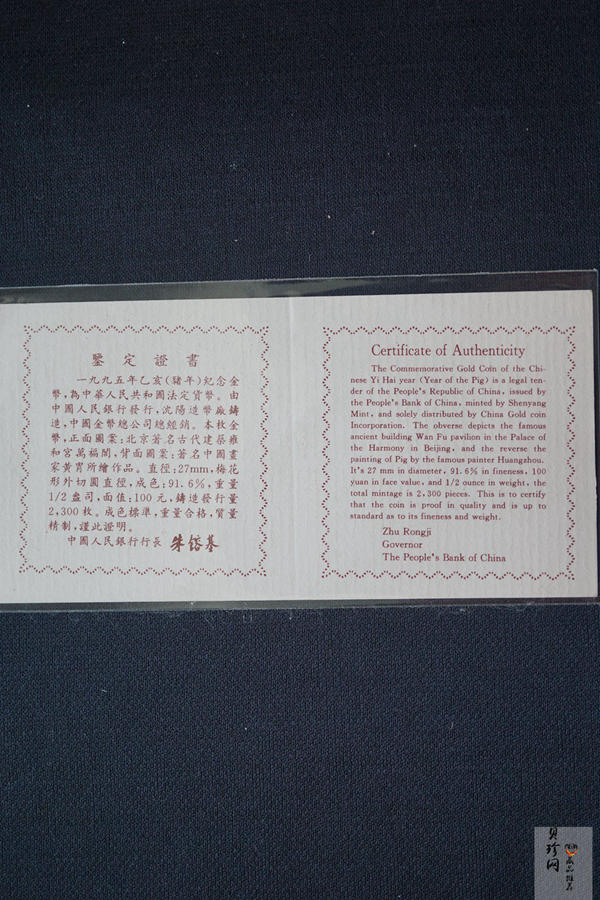 鑒定證書
一九九五年乙亥(豬年)紀念金
幣，為中華人民共和國法定貨幣。由
中國人民銀行發行，沈陽造幣廠鑄
造，中國金幣總公司總經銷。本枚金
幣，正面圖案：北京著名古代建築雍
和宮萬福閣，背面圖案：著名中國畫
家黃胄所繪作品。直徑：27mm，梅花
形外切圓直徑，成色：91.6%，重量
1/2盎司，面值：100元，鑄造發行量
2,300枚。成色標準，重量合格，質量
精制，謹此證明。
中國人民銀行行長 朱鎔基
Certificate of Authenticity
The Commemorative Gold Coin of the Chi-
nese Yi Hai year (Year of the Pig) is a legal ten-
der of the People's Republic of China, issued by
the People's Bank of China, minted by Shenyang
Mint, and solely distributed by China Gold coin
Incorporation. The obverse depicts the famous
ancient building Wan Fu pavilion in the Palace of
the Harmony in Beijing, and the reverse the
painting of Pig by the famous painter Huangzhou.
It's 27 mm in diameter, 91.6% in fineness, 100
yuan in face value, and 1/2 ounce in weight, the
total mintage is 2,300 pieces. This is to certify
that the coin is proof in quality and is up to
standard as to its fineness and weight.
Zhu Rongji
Governor
The People's Bank of China
貝珍网